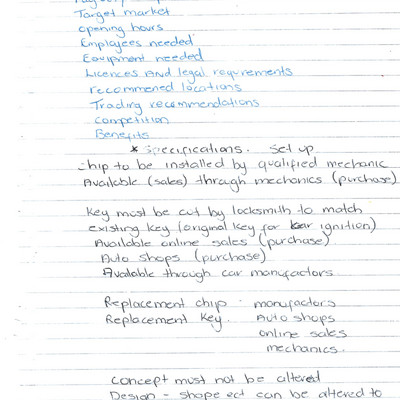 Target market
opening hours
Employees needed
Equipment needed
Licences And legal requirements
recommened locations
Trading recommendations
competition
Benefits
* Specifications. Set up
chip to be installed by qualified mechanic
Available (sales) through mechanics (purchase)
Key must be cut by locksmith to match
existing key (original key for car ignition)
Available online sales (purchase)
Auto shops (purchase)
Available through car manufactors
Replacement chip manufactors
Replacement Key. Auto shops
online sales
mechanics.
concept must not be altered
Design - shape ect can be altered to